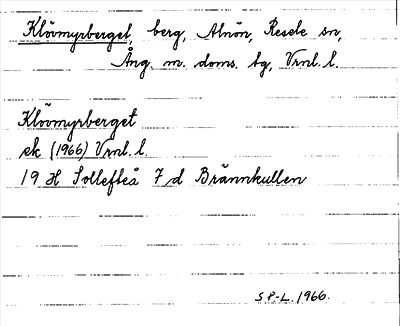 Klövmyrberget, berg, Alnön, Resele sn,
Ång. m. doms. bg, Vrnl. l.
Klövmyrberget
ek (1966) Vrnl. l.
19 H Sollefteå 7 d Brännkullen
SP-L. 1966.